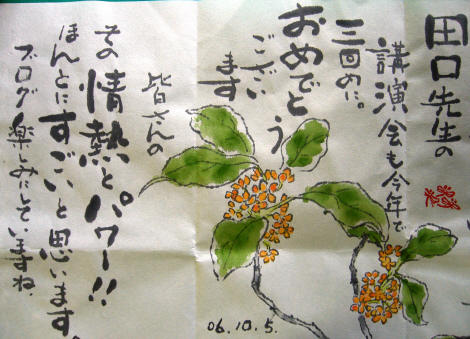 田口先生の
講演会も今年で
三回めに。
おめでとう
ござい
ます
皆さんの
その情熱とパワー!!
ほんとにすごいと思います
ブログ楽しみにしていますね.
06.10.5.